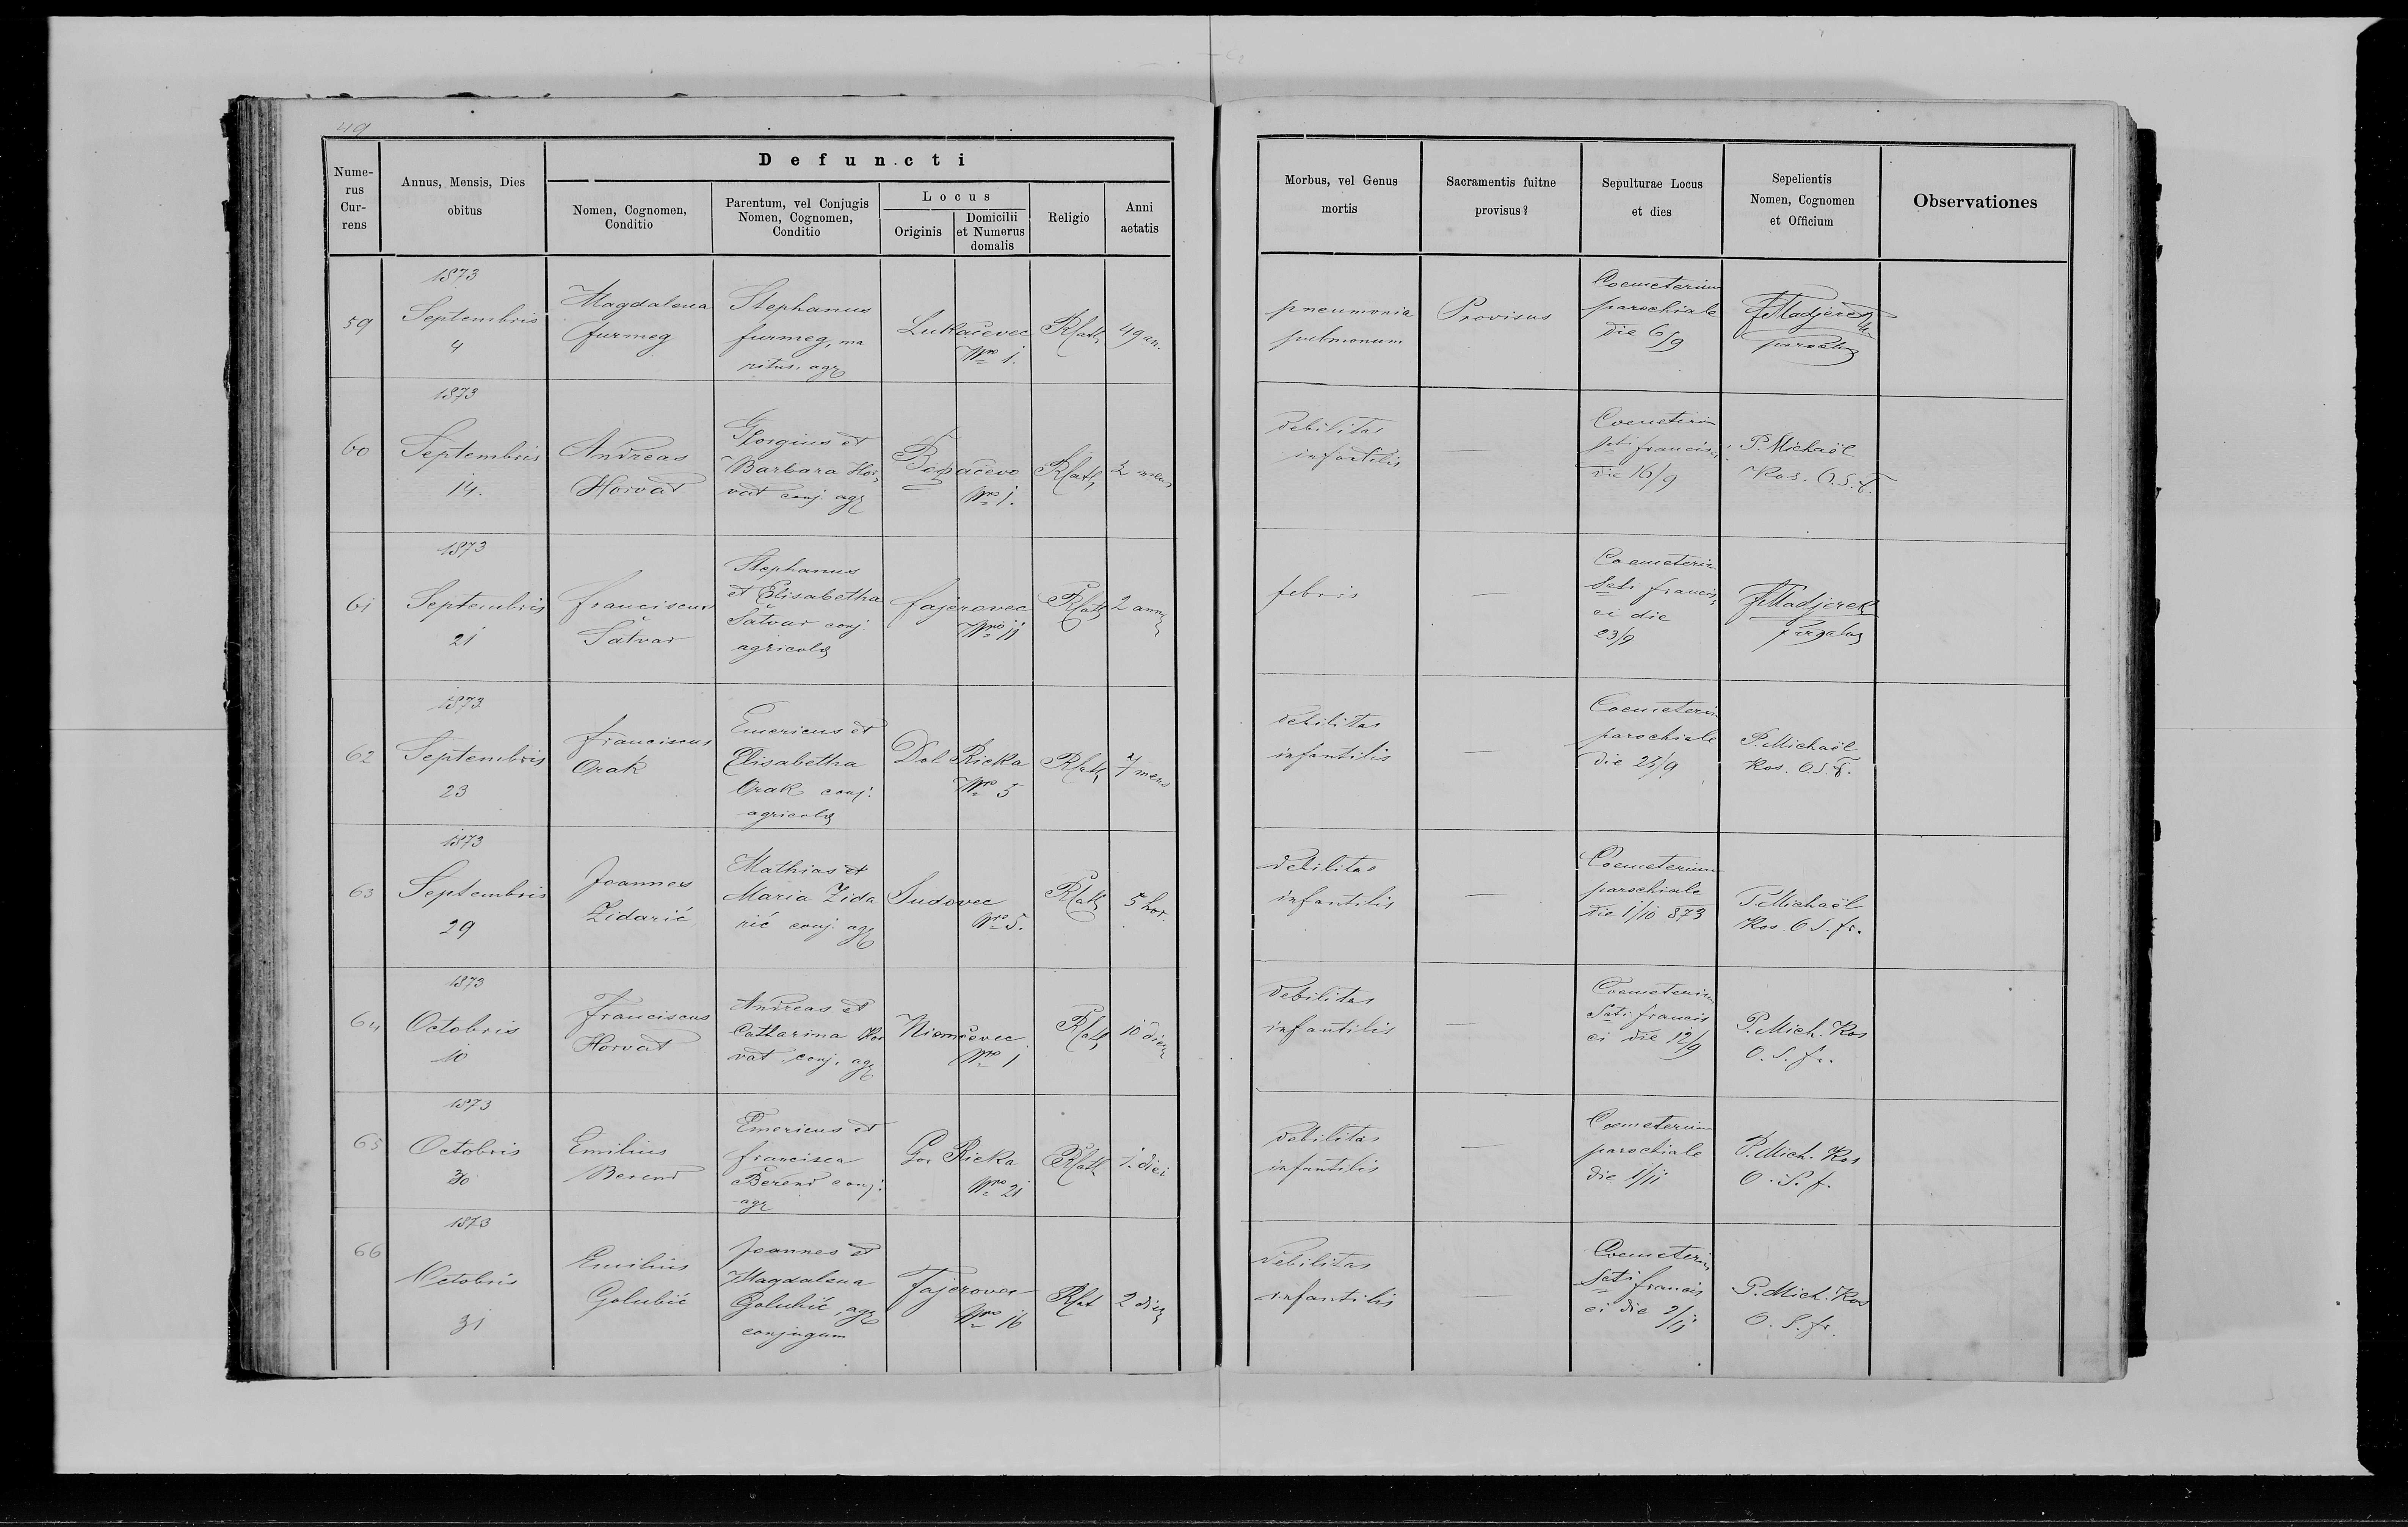 49
Defuncti
Numerus Currens
Annus, Mensis, Dies obitus
Nomen, Cognomen, Conditio
Parentum, vel Conjugis Nomen, Cognomen, Conditio
Locus
Originis
Domicilii et Numerus domalis
Religio
Anni aetatis
Morbus, vel Genus mortis
Sacramentis fuitne provisus?
Sepulturae Locus et dies
Sepelientis Nomen, Cognomen et Officium
Observationes
59
1873
Septembris
4
Magdalena
furmeg
Stephanus
furmeg, ma
ritus, agr
Lukačevec
Nro 1.
RCath
49 an.
pneumonia
pulmonum
Provisus
Coemeterium
parochiale
die 6/9
F Madjerek
paroch
60
1873
Septembris
14.
Andreas
Horvat
Georgius et
Barbara Hor
vat conj. agr
Nro 1.
RCath
2 mens
debilitas
infantilis
—
Coemeterium
Scti francisci
die 16/9
P. Michaël
Kos. O.S.F.
61
1873
Septembris
21
franciscus
Šatvar
Stephanus
et Elisabetha
Šatvar conj.
agricola
fajerovec
Nro 11
RCath
2 ann
febris
—
Coemeterium
Scti francis
ci die
23/9
F Madjerek
62
1873
Septembris
23
franciscus
Orak
Emericus et
Elisabetha
Orak conj.
agricola
Dol Rieka
Nro 5
RCath
7 mens
debilitas
infantilis
—
Coemeterium
parochiale
die 25/9
P. Michaël
Kos. O.S.F.
63
1873
Septembris
29
Joannes
Zidarić
Mathias et
Maria Zida
rić conj. agr
Sudovec
Nro 5.
RCath
5 hor.
debilitas
infantilis
—
Coemeterium
parochiale
die 1/10 873
P. Michaël
Kos. O S. fr.
64
1873
Octobris
10
Franciscus
Horvat
Andreas et
Catharina Hor
vat conj. agr
Niemčevec
Nro 1
RCath
10 dier
debilitas
infantilis
—
Coemeterium
Scti francis
ci die 12/9
P. Mich. Kos
O. S. fr.
65
1873
Octobris
30
Emilius
Berend
Emericus et
francisca
Berend conj.
agr
Gor Rieka
Nro 21
RCath
1. diei
debilitas
infantilis
—
Coemeterium
parochiale
die 1/11
P. Mich. Kos
O. S. f.
66
1873
Octobris
31
Emilius
Golubić
Joannes et
Magdalena
Golubić, agr
conjugum
Fajerovec
Nro 16
RCat
2 dier
debilitas
infantilis
—
Coemeterium
Scti francis
ci die 2/11
P. Mich. Kos
O. S. fr.